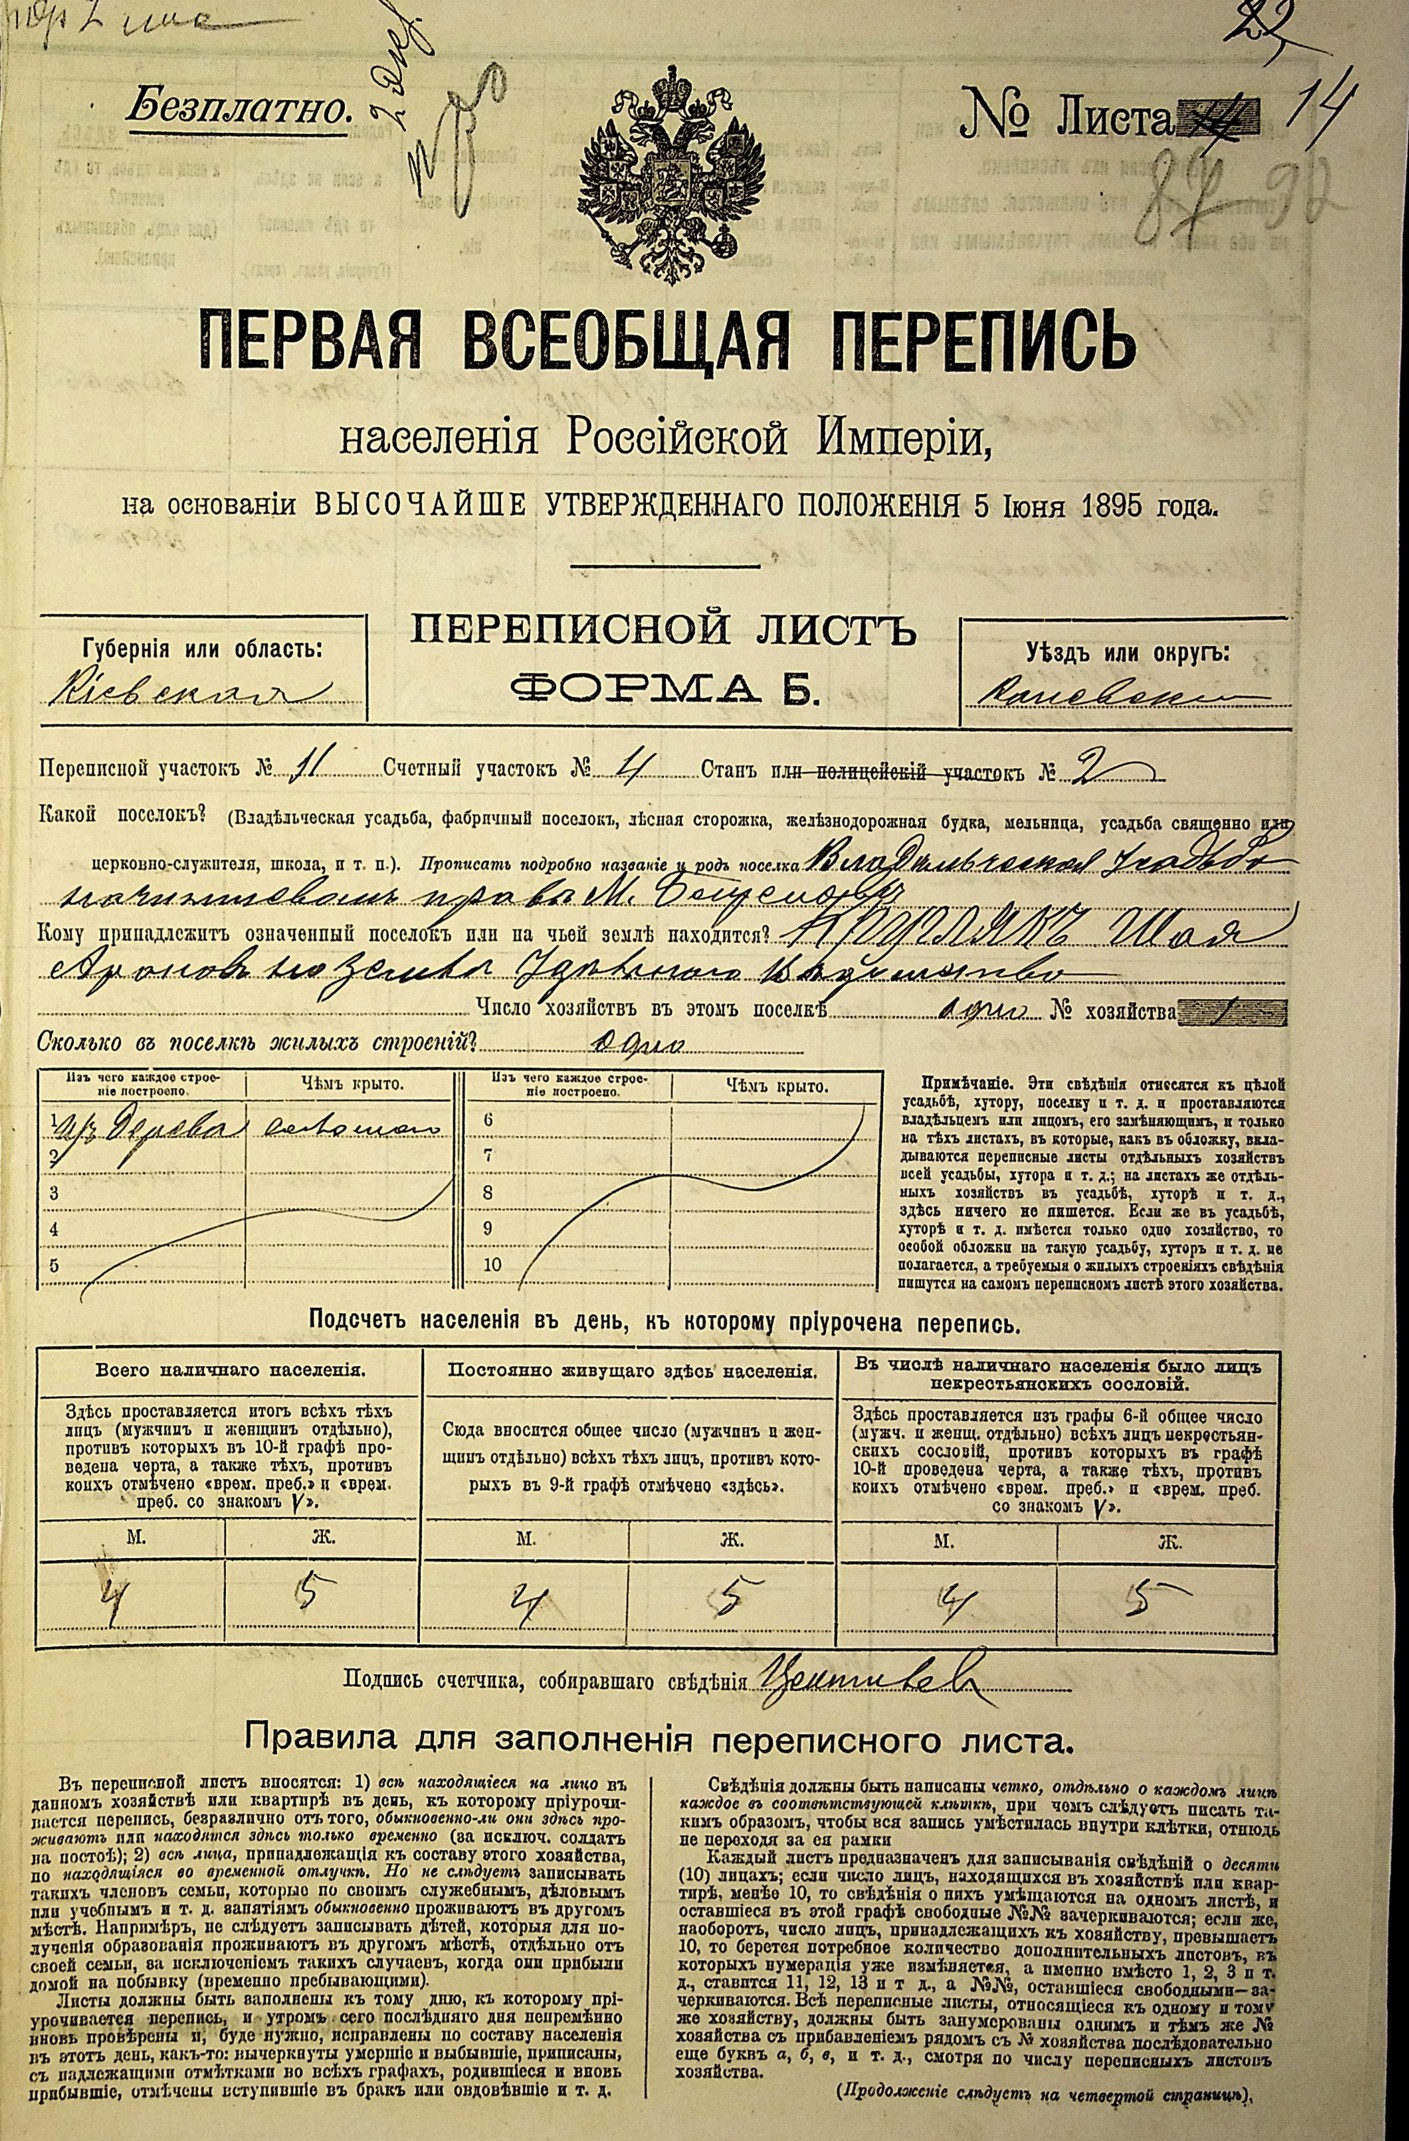 22,
Безплатно.
№ Листа 14
87 92
ПЕРВАЯ ВСЕОБЩАЯ ПЕРЕПИСЬ
населенія Россійской Имперіи,
на основаніи ВЫСОЧАЙШЕ УТВЕРЖДЕННАГО ПОЛОЖЕНІЯ 5 Іюня 1895 года.
ПЕРЕПИСНОЙ ЛИСТЪ
ФОРМА Б.
Губернія или область:
Кіевская
Уѣздъ или округъ:
Каневскій
Переписной участокъ № 11 Счетный участокъ № 4 Станъ или полицейскій участокъ № 2
Какой поселокъ? (Владѣльческая усадьба, фабричный поселокъ, лѣсная сторожка, желѣзнодорожная будка, мельница, усадьба священно или
церковно-служителя, школа, и т. п.). Прописать подробно названіе и родъ поселка Владѣльческая усадьба
М.
Кому принадлежитъ означенный поселокъ или на чьей землѣ находится? Шоя
Аронов на земле Удѣльного
Число хозяйствъ въ этомъ поселкѣ одно № хозяйства 1
Сколько въ поселкѣ жилыхъ строеній? одно
Изъ чего каждое строеніе построено.
Чѣмъ крыто.
Изъ чего каждое строеніе построено.
Чѣмъ крыто.
1 изъ дерева соломою
2
3
4
5
6
7
8
9
10
Примѣчаніе. Эти свѣдѣнія относятся къ цѣлой
усадьбѣ, хутору, поселку и т. д. и проставляются
владѣльцемъ или лицомъ, его замѣняющимъ, и только
на тѣхъ листахъ, въ которые, какъ въ обложку, вкла-
дываются переписные листы отдѣльныхъ хозяйствъ
всей усадьбы, хутора и т. д.; на листахъ же отдѣль-
ныхъ хозяйствъ въ усадьбѣ, хуторѣ и т. д.,
здѣсь ничего не пишется. Если же въ усадьбѣ,
хуторѣ и т. д. имѣется только одно хозяйство, то
особой обложки на такую усадьбу, хуторъ и т. д. не
полагается, а требуемыя о жилыхъ строеніяхъ свѣдѣнія
пишутся на самомъ переписномъ листѣ этого хозяйства.
Подсчетъ населенія въ день, къ которому пріурочена перепись.
Всего наличнаго населенія.
Здѣсь проставляется итогъ всѣхъ тѣхъ
лицъ (мужчинъ и женщинъ отдѣльно),
противъ которыхъ въ 10-й графѣ про-
ведена черта, а также тѣхъ, противъ
коихъ отмѣчено «врем. преб.» и «врем.
преб. со знакомъ V».
М. Ж.
4 5
Постоянно живущаго здѣсь населенія.
Сюда вносится общее число (мужчинъ и жен-
щинъ отдѣльно) всѣхъ тѣхъ лицъ, противъ кото-
рыхъ въ 9-й графѣ отмѣчено «здѣсь».
М. Ж.
4 5
Въ числѣ наличнаго населенія было лицъ
некрестьянскихъ сословій.
Здѣсь проставляется изъ графы 6-й общее число
(мужч. и женщ. отдѣльно) всѣхъ лицъ некрестьян-
скихъ сословій, противъ которыхъ въ графѣ
10-й проведена черта, а также тѣхъ, противъ
коихъ отмѣчено «врем. преб.» и «врем. преб.
со знакомъ V».
М. Ж.
4 5
Подпись счетчика, собиравшаго свѣдѣнія
Правила для заполненія переписного листа.
Въ переписной листъ вносятся: 1) всѣ находящіеся на лицо въ
данномъ хозяйствѣ или квартирѣ въ день, къ которому пріурочи-
вается перепись, безразлично отъ того, обыкновенно-ли они здѣсь про-
живаютъ или находятся здѣсь только временно (за исключ. солдатъ
на постоѣ); 2) всѣ лица, принадлежащія къ составу этого хозяйства,
но находящіяся во временной отлучкѣ. Но не слѣдуетъ записывать
такихъ членовъ семьи, которые по своимъ служебнымъ, дѣловымъ
или учебнымъ и т. д. занятіямъ обыкновенно проживаютъ въ другомъ
мѣстѣ. Напримѣръ, не слѣдуетъ записывать дѣтей, которыя для по-
лученія образованія проживаютъ въ другомъ мѣстѣ, отдѣльно отъ
своей семьи, за исключеніемъ такихъ случаевъ, когда они прибыли
домой на побывку (временно пребывающими).
Листы должны быть заполнены къ тому дню, къ которому прі-
урочивается перепись, и утромъ сего послѣдняго дня непремѣнно
вновь провѣрены и, буде нужно, исправлены по составу населенія
въ этотъ день, какъ-то: вычеркнуты умершіе и выбывшіе, приписаны,
съ надлежащими отмѣтками во всѣхъ графахъ, родившіеся и вновь
прибывшіе, отмѣчены вступившіе въ бракъ или овдовѣвшіе и т. д.
Свѣдѣнія должны быть написаны четко, отдѣльно о каждомъ лицѣ
каждое въ соотвѣтствующей клѣткѣ, при чемъ слѣдуетъ писать та-
кимъ образомъ, чтобы вся запись умѣстилась внутри клѣтки, отнюдь
не переходя за ея рамки
Каждый листъ предназначенъ для записыванія свѣдѣній о десяти
(10) лицахъ; если число лицъ, находящихся въ хозяйствѣ или квар-
тирѣ, менѣе 10, то свѣдѣнія о нихъ умѣщаются на одномъ листѣ, и
оставшіеся въ этой графѣ свободные №№ зачеркиваются; если же,
наоборотъ, число лицъ, принадлежащихъ къ хозяйству, превышаетъ
10, то берется потребное количество дополнительныхъ листовъ, въ
которыхъ нумерація уже измѣняется, а именно вмѣсто 1, 2, 3 и т.
д., ставится 11, 12, 13 и т д., а №№, оставшіеся свободными—за-
черкиваются. Всѣ переписные листы, относящіеся къ одному и тому
же хозяйству, должны быть занумерованы однимъ и тѣмъ же №
хозяйства съ прибавленіемъ рядомъ съ № хозяйства послѣдовательно
еще буквъ а, б, в, и т. д., смотря по числу переписныхъ листовъ
хозяйства.
(Продолженіе слѣдуетъ на четвертой страницѣ).